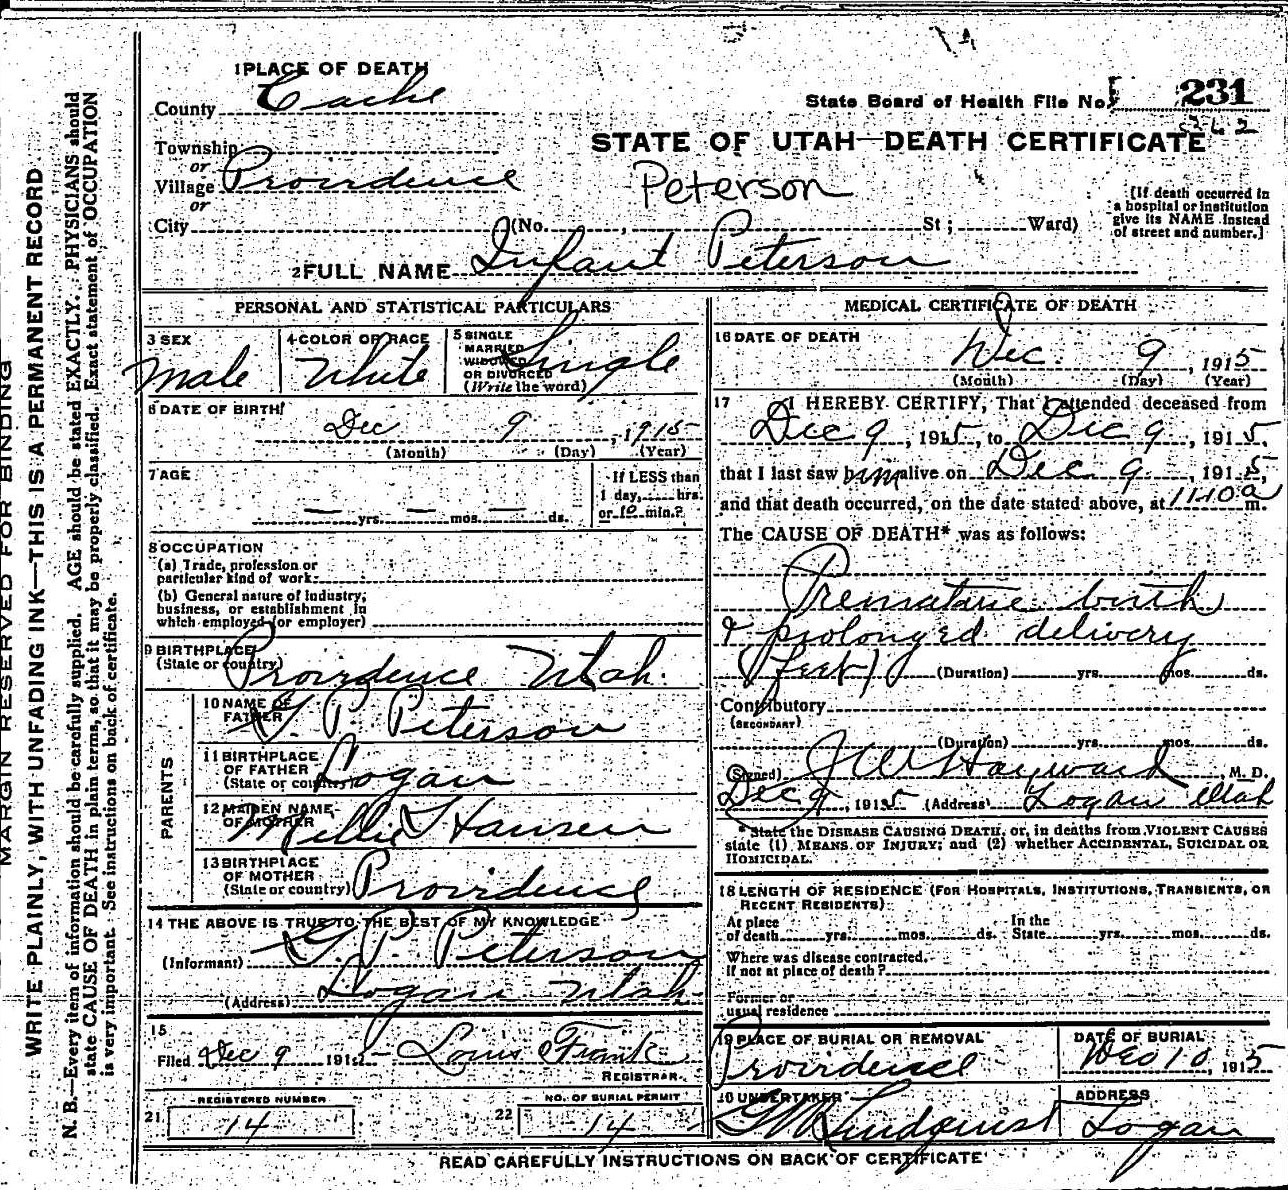 1 PLACE OF DEATH
County Cache
State Board of Health File No. 231
262
STATE OF UTAH—DEATH CERTIFICATE
Township
or
Village Providence
or
Peterson
City (No. , St ; Ward)
[If death occurred in
a hospital or institution
give its NAME instead
of street and number.]
2 FULL NAME Infant Peterson
PERSONAL AND STATISTICAL PARTICULARS
3 SEX
Male
4 COLOR OR RACE
White
5 SINGLE
MARRIED
WIDOWED
OR DIVORCED
(Write the word)
Single
6 DATE OF BIRTH
Dec 9, 1915
(Month) (Day) (Year)
7 AGE
— yrs. — mos. — ds.
If LESS than
1 day, hrs.
or 10 min.?
8 OCCUPATION
(a) Trade, profession or
particular kind of work
(b) General nature of industry,
business, or establishment in
which employed (or employer)
9 BIRTHPLACE
(State or country)
Providence Utah.
PARENTS
10 NAME OF
FATHER
P. Peterson
11 BIRTHPLACE
OF FATHER
(State or country)
Logan
12 MAIDEN NAME
OF MOTHER
Millie Hansen
13 BIRTHPLACE
OF MOTHER
(State or country)
Providence
14 THE ABOVE IS TRUE TO THE BEST OF MY KNOWLEDGE
(Informant) P. Peterson
(Address) Logan Utah
15
Filed Dec 9 191 Louis Frank
REGISTRAR
REGISTERED NUMBER
21 14
NO. OF BURIAL PERMIT
22 14
MEDICAL CERTIFICATE OF DEATH
16 DATE OF DEATH
Dec. 9, 1915
(Month) (Day) (Year)
17 I HEREBY CERTIFY, That I attended deceased from
Dec 9, 1915, to Dec 9, 1915,
that I last saw him alive on Dec 9, 1915,
and that death occurred, on the date stated above, at 1110 a m.
The CAUSE OF DEATH* was as follows:
Premature birth
& prolonged delivery
(feet) (Duration) yrs. mos. ds.
Contributory
(SECONDARY)
(Duration) yrs. mos. ds.
(Signed) J W Hayward, M. D.
Dec 9, 1915 (Address) Logan Utah
* State the DISEASE CAUSING DEATH, or, in deaths from VIOLENT CAUSES
state (1) MEANS OF INJURY; and (2) whether ACCIDENTAL, SUICIDAL OR
HOMICIDAL.
18 LENGTH OF RESIDENCE (FOR HOSPITALS, INSTITUTIONS, TRANSIENTS, OR
RECENT RESIDENTS)
At place
of death yrs. mos. ds.
In the
State yrs. mos. ds.
Where was disease contracted,
if not at place of death?
Former or
usual residence
19 PLACE OF BURIAL OR REMOVAL
Providence
DATE OF BURIAL
Dec 10, 1915
20 UNDERTAKER
Lindquist
ADDRESS
Logan
READ CAREFULLY INSTRUCTIONS ON BACK OF CERTIFICATE
MARGIN RESERVED FOR BINDING
WRITE PLAINLY, WITH UNFADING INK—THIS IS A PERMANENT RECORD
N. B.—Every item of information should be carefully supplied. AGE should be stated EXACTLY. PHYSICIANS should
state CAUSE OF DEATH in plain terms, so that it may be properly classified. Exact statement of OCCUPATION
is very important. See instructions on back of certificate.